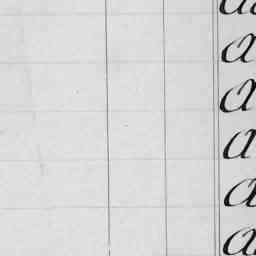 a
a
a
a
a
a